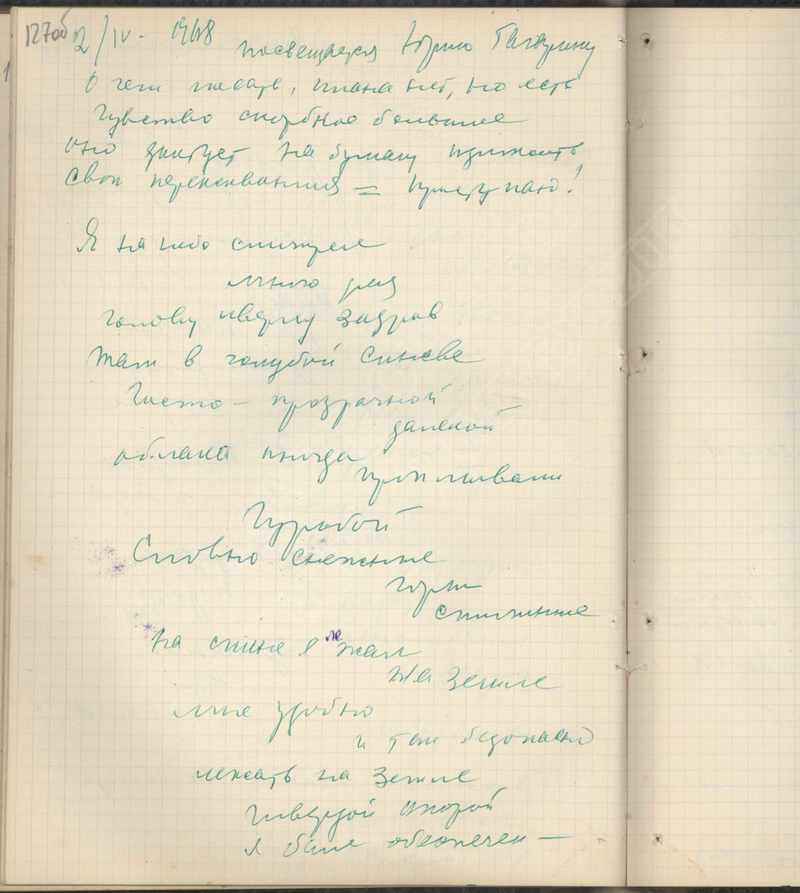 127об 2/IV. 1968
посвещается Юрию Гагарину
О чем писать, плана нет, но есть
чувство скорбное большое
оно диктует на бумагу изложить
свои переживания = приступаю!
Я на небо смотрел
много раз
голову кверху задрав
там в голубой синеве
Чисто – прозрачной
далекой
облака иногда
проплывали
Чередой
Словно снежные
горы
сплошные
На спине я лежал
на Земле
мне удобно
и так безопасно
лежать на Земле
твердой опорой
я был обеспечен —